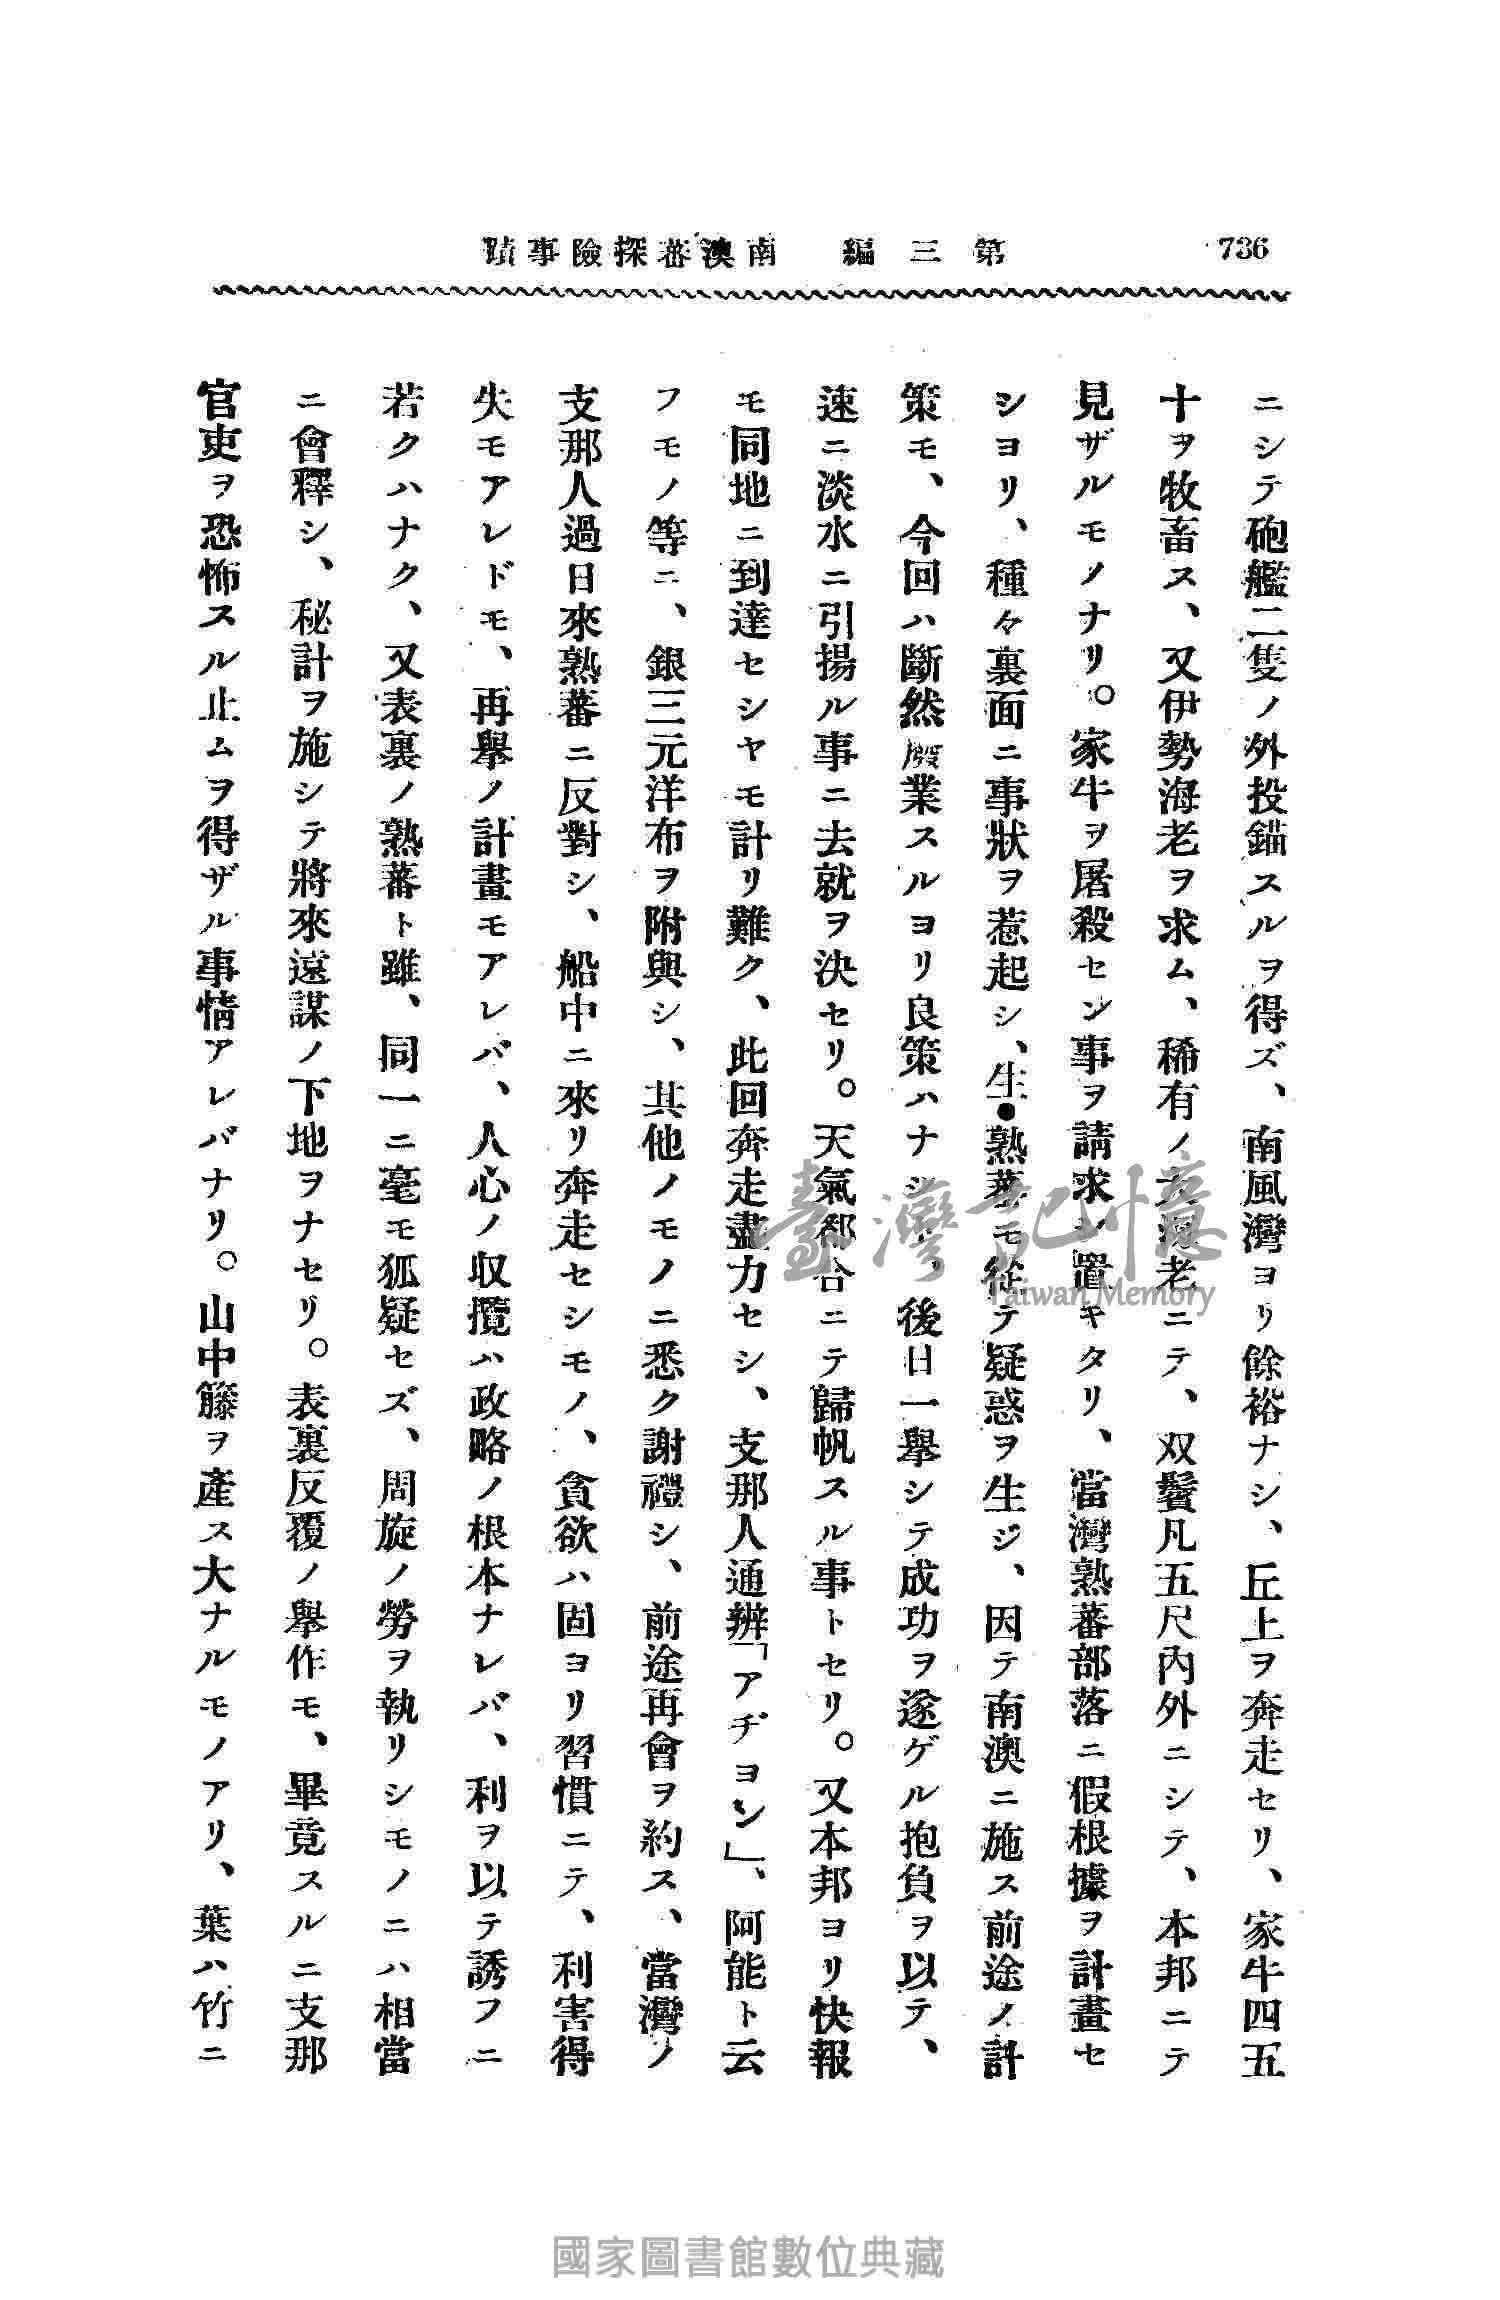 736
第三編　南澳蕃探險事蹟
ニシテ砲艦二隻ノ外投錨スルヲ得ズ、南風灣ヨリ餘裕ナシ、丘上ヲ奔走セリ、家牛四五
十ヲ牧畜ス、又伊勢海老ヲ求ム、稀有ノ大海老ニテ、双鬢凡五尺內外ニシテ、本邦ニテ
見ザルモノナリ。家牛ヲ屠殺セン事ヲ請求シ置キタリ、當灣熟蕃部落ニ假根據ヲ計畫セ
シヨリ、種々裏面ニ事狀ヲ惹起シ、生●熟蕃モ從テ疑惑ヲ生ジ、因テ南澳ニ施ス前途ノ計
策モ、今回ハ斷然廢業スルヨリ良策ハナシ、後日一擧シテ成功ヲ遂ゲル抱負ヲ以テ、
速ニ淡水ニ引揚ル事ニ去就ヲ決セリ。天氣都合ニテ歸帆スル事トセリ。又本邦ヨリ快報
モ同地ニ到達セシヤモ計リ難ク、此回奔走盡力セシ、支那人通辨「アヂヨン」、阿能ト云
フモノ等ニ、銀三元洋布ヲ附與シ、其他ノモノニ悉ク謝禮シ、前途再會ヲ約ス、當灣ノ
支那人過日來熟蕃ニ反對シ、船中ニ來リ奔走セシモノ、貪欲ハ固ヨリ習慣ニテ、利害得
失モアレドモ、再擧ノ計畫モアレバ、人心ノ収攬ハ政略ノ根本ナレバ、利ヲ以テ誘フニ
若クハナク、又表裏ノ熟蕃ト雖、同一ニ毫モ狐疑セズ、周旋ノ勞ヲ執リシモノニハ相當
ニ會釋シ、秘計ヲ施シテ將來遠謀ノ下地ヲナセリ。表裏反覆ノ擧作モ、畢竟スルニ支那
官吏ヲ恐怖スル止ムヲ得ザル事情アレバナリ。山中籐ヲ產ス大ナルモノアリ、葉ハ竹ニ
臺灣記憶
Taiwan Memory
國家圖書館數位典藏